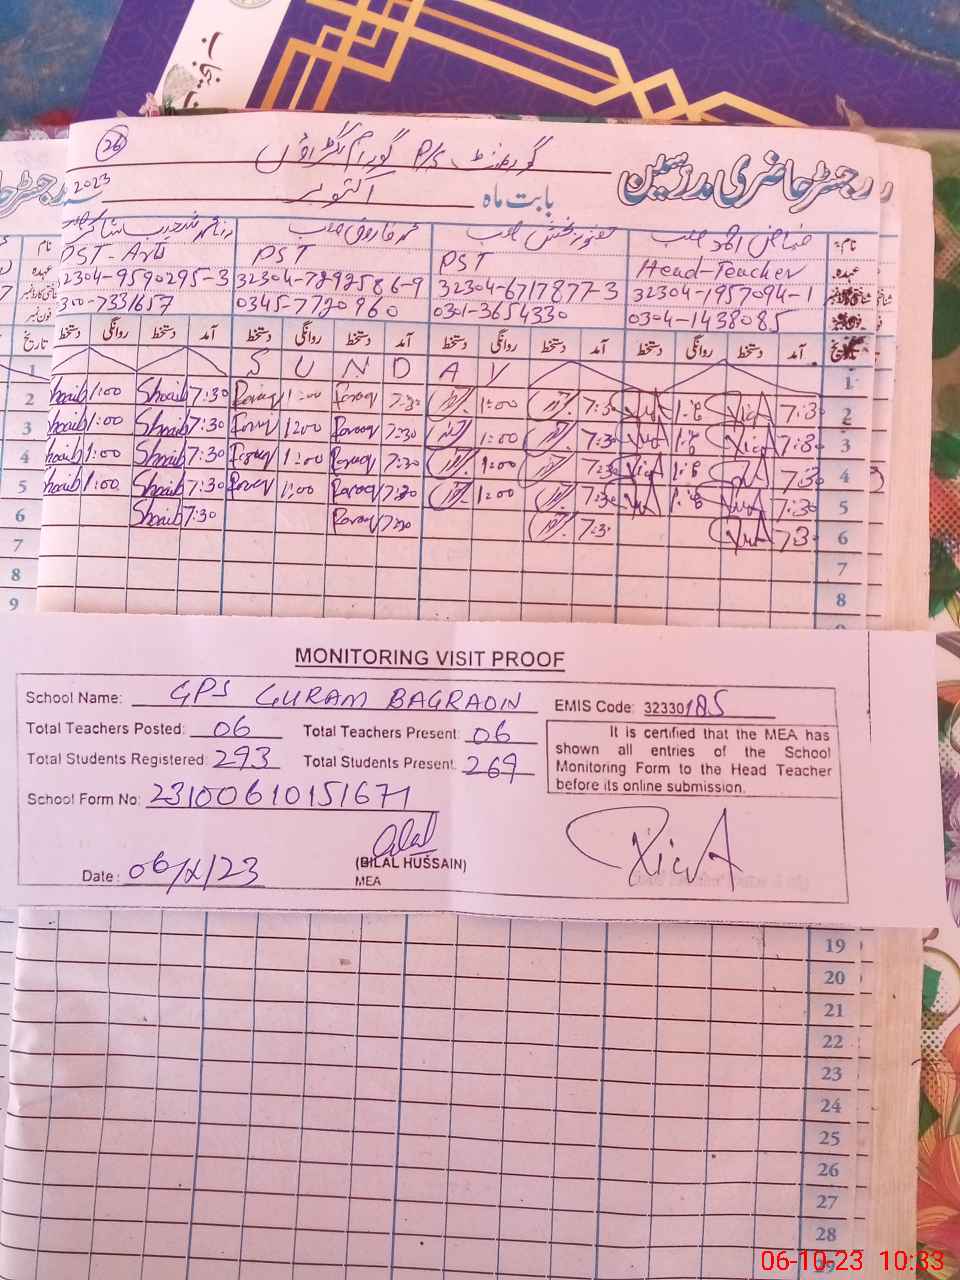 26
گورنمنٹ P/S
رجسٹر حاضری مدرسین
2023
بابت ماہ اکتوبر
نام
PST PST PST Head-Teacher
عہدہ
32304-7292586-9 32304-6717877-3 32304-1957094-1
0345-7720960 0301-3654330 0304-1438085
فون نمبر
دستخط روانگی دستخط آمد دستخط روانگی دستخط آمد دستخط روانگی دستخط آمد دستخط روانگی دستخط آمد تاریخ
1 S U N D A Y 1
2 Shoaib 1:00 Shoaib 7:30 Farooq 1:00 Farooq 7:30 1:00 7:30 7:30 2
3 Shoaib 1:00 Shoaib 7:30 Farooq 1:00 Farooq 7:30 1:00 7:30 7:30 3
4 Shoaib 1:00 Shoaib 7:30 Farooq 1:00 Farooq 7:30 1:00 7:30 7:30 4
5 Shoaib 1:00 Shoaib 7:30 Farooq 1:00 Farooq 7:30 1:00 7:30 7:30 5
6 Shoaib 7:30 Farooq 7:30 7:30 7:30 6
7 7
8 8
9
MONITORING VISIT PROOF
School Name: GPS GURAM BAGRAOIN EMIS Code: 32330185
Total Teachers Posted: 06 Total Teachers Present: 06
Total Students Registered: 293 Total Students Present: 269
School Form No: 23100610151671
It is certified that the MEA has
shown all entries of the School
Monitoring Form to the Head Teacher
before its online submission.
Date: 06/X/23
(BILAL HUSSAIN)
MEA
19
20
21
22
23
24
25
26
27
28
29
06-10-23 10:33